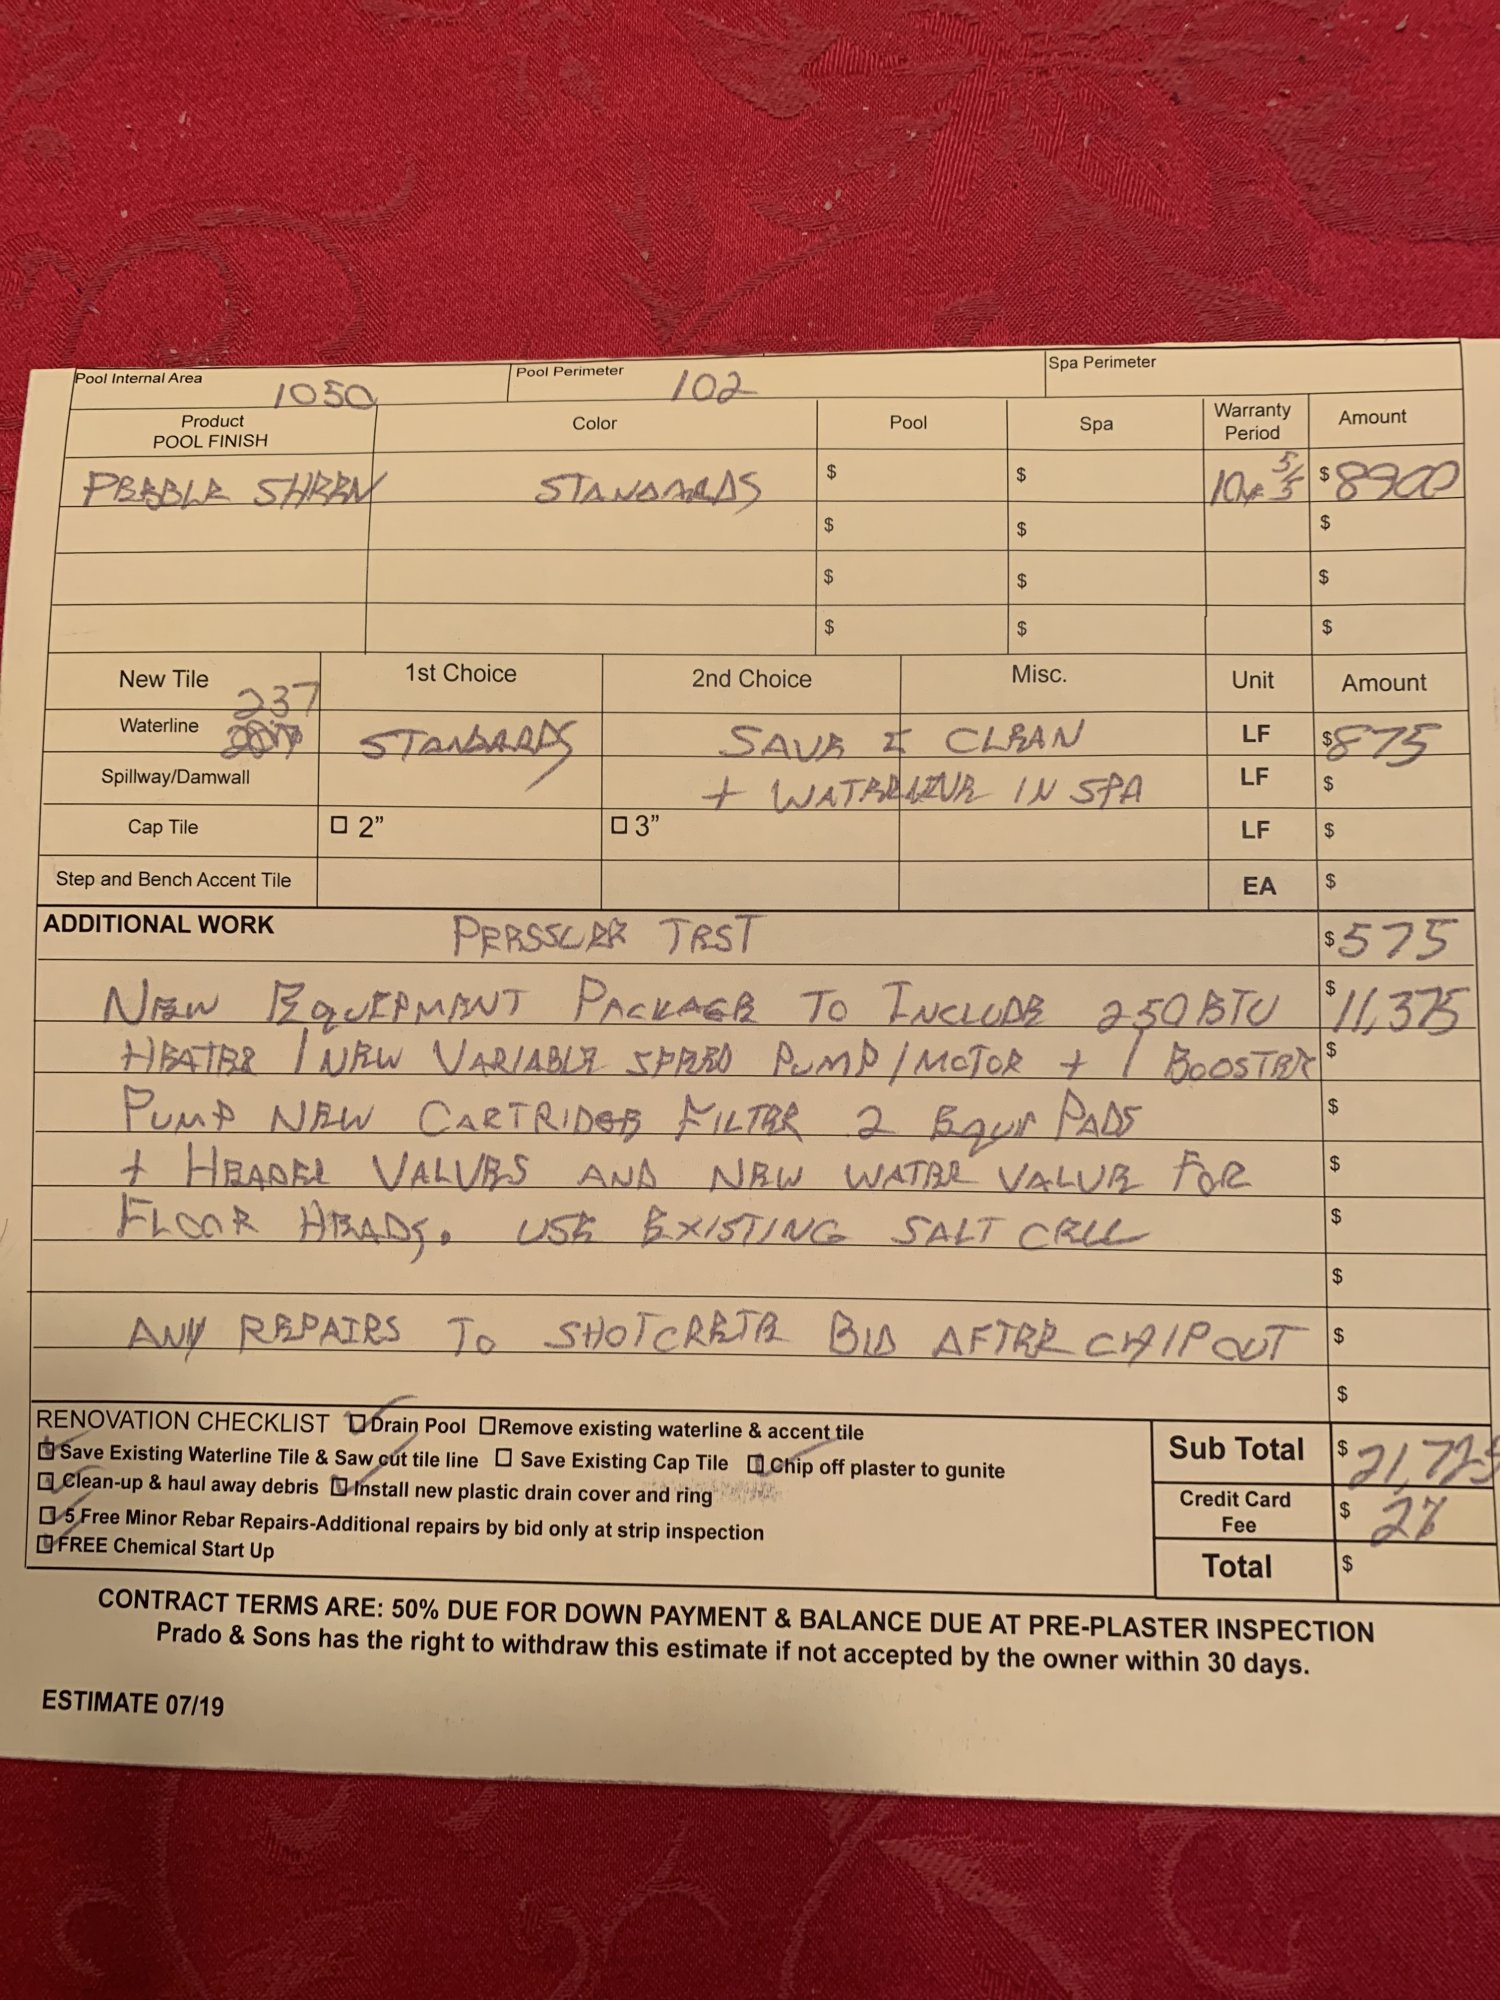 Pool Internal Area 1050 Pool Perimeter 102 Spa Perimeter
Product POOL FINISH Color Pool Spa Warranty Period Amount
PEBBLE SHEEN STANDARDS $ $ 10yr 5/5 $8900
$ $ $
$ $ $
$ $ $
New Tile 1st Choice 2nd Choice Misc. Unit Amount
237
Waterline STANDARDS SAVE & CLEAN LF $875
Spillway/Damwall + WATERLINE IN SPA LF $
Cap Tile 2" 3" LF $
Step and Bench Accent Tile EA $
ADDITIONAL WORK PERSSURE TEST $575
NEW EQUIPMENT PACKAGE TO INCLUDE 250 BTU $11,375
HEATER / NEW VARIABLE SPEED PUMP/MOTOR + 1 BOOSTER $
PUMP NEW CARTRIDGE FILTER 2 EQUIP PADS $
+ HEADER VALVES AND NEW WATER VALVE FOR $
FLOOR HEADS. USE EXISTING SALT CELL $
$
ANY REPAIRS TO SHOTCRETE BID AFTER CHIP OUT $
$
RENOVATION CHECKLIST Drain Pool Remove existing waterline & accent tile
Save Existing Waterline Tile & Saw cut tile line Save Existing Cap Tile Chip off plaster to gunite
Clean-up & haul away debris Install new plastic drain cover and ring
5 Free Minor Rebar Repairs-Additional repairs by bid only at strip inspection
FREE Chemical Start Up
Sub Total $21,725
Credit Card Fee $ 2%
Total $
CONTRACT TERMS ARE: 50% DUE FOR DOWN PAYMENT & BALANCE DUE AT PRE-PLASTER INSPECTION
Prado & Sons has the right to withdraw this estimate if not accepted by the owner within 30 days.
ESTIMATE 07/19